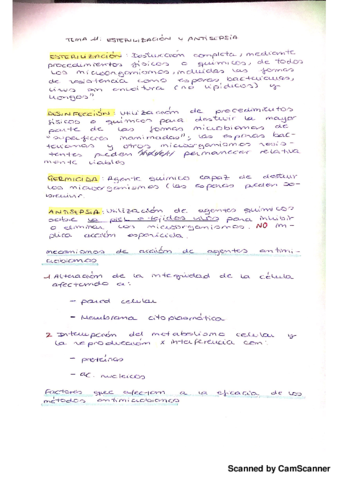 TEMA 11: ESTERILIZACIÓN Y ANTISEPSIA
ESTERILIZACIÓN: Destrucción completa, mediante
procedimientos físicos o químicos, de todos
los microorganismos, incluidas las formas
de resistencia como esporas bacterianas,
virus sin envoltura (no lipídicos) y
hongos"
DESINFECCIÓN: Utilización de procedimientos
físicos o químicos para destruir la mayor
parte de las formas microbianas de
"superficies inanimadas", las esporas bac-
terianas y otros microorganismos resis-
tentes pueden permanecer relativa
mente viables
GERMICIDA: Agente químico capaz de destruir
los microorganismos (las esporas pueden so-
brevivir.
ANTISEPSIA: Utilización de agentes químicos
sobre la piel o tejidos vivos para inhibir
o eliminar los microorganismos. NO im-
plica acción esporicida.
mecanismos de acción de agentes antimi-
crobianos
1. Alteración de la integridad de la célula
afectando a:
- pared celular
- Membrana citoplasmática
2. Interrupción del metabolismo celular y
la reproducción x interferencia con:
- proteínas
- ac. nucleicos
Factores que afectan a la eficacia de los
métodos antimicrobianos
Scanned by CamScanner